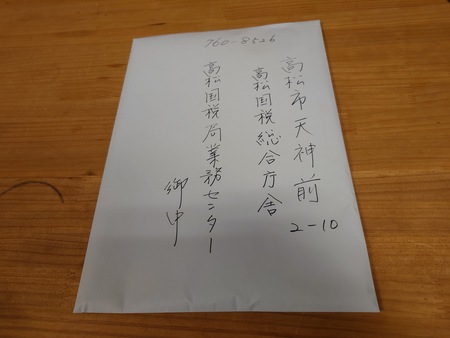 760-8526
高松市天神前
2-10
高松国税総合庁舎
高松国税局業務センター
御中